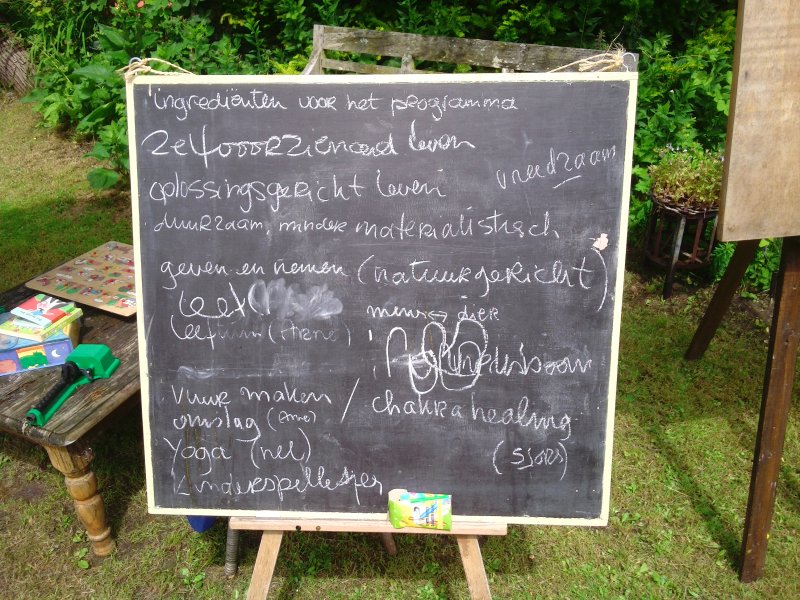 ingrediënten voor het programma
zelfvoorzienend leven
vreedzaam
oplossingsgericht leven
duurzaam, minder materialistisch
geven en nemen (natuurgericht)
leef
mens ↔ dier
leeftuin (
vuur maken /
chakra healing
omslag (
yoga (nel)
(sjors)
kinderspelletjes